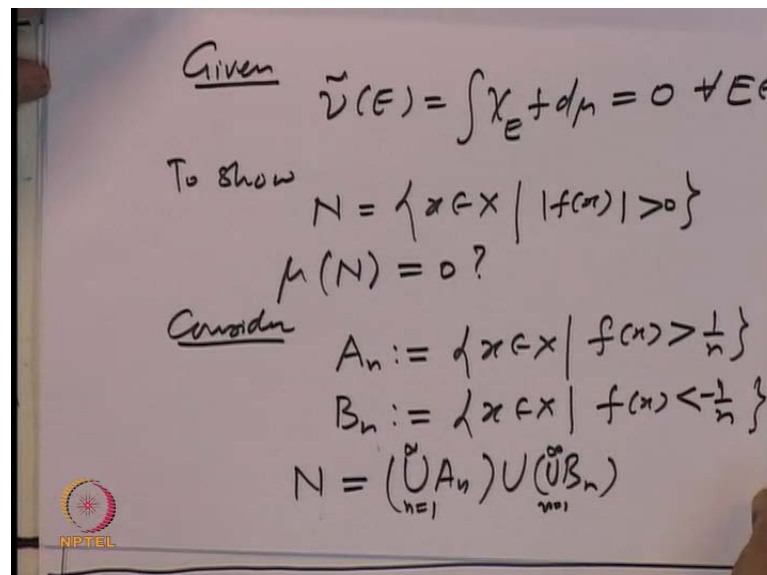 Given ν̃(E) = ∫χ_E f dμ = 0 ∀ E∈
To show
N = {x∈X | |f(x)| > 0}
μ(N) = 0 ?
Consider
A_n := {x∈X | f(x) > 1/n}
B_n := {x∈X | f(x) < -1/n}
N = (∪_{n=1}^∞ A_n) ∪ (∪_{n=1}^∞ B_n)
NPTEL